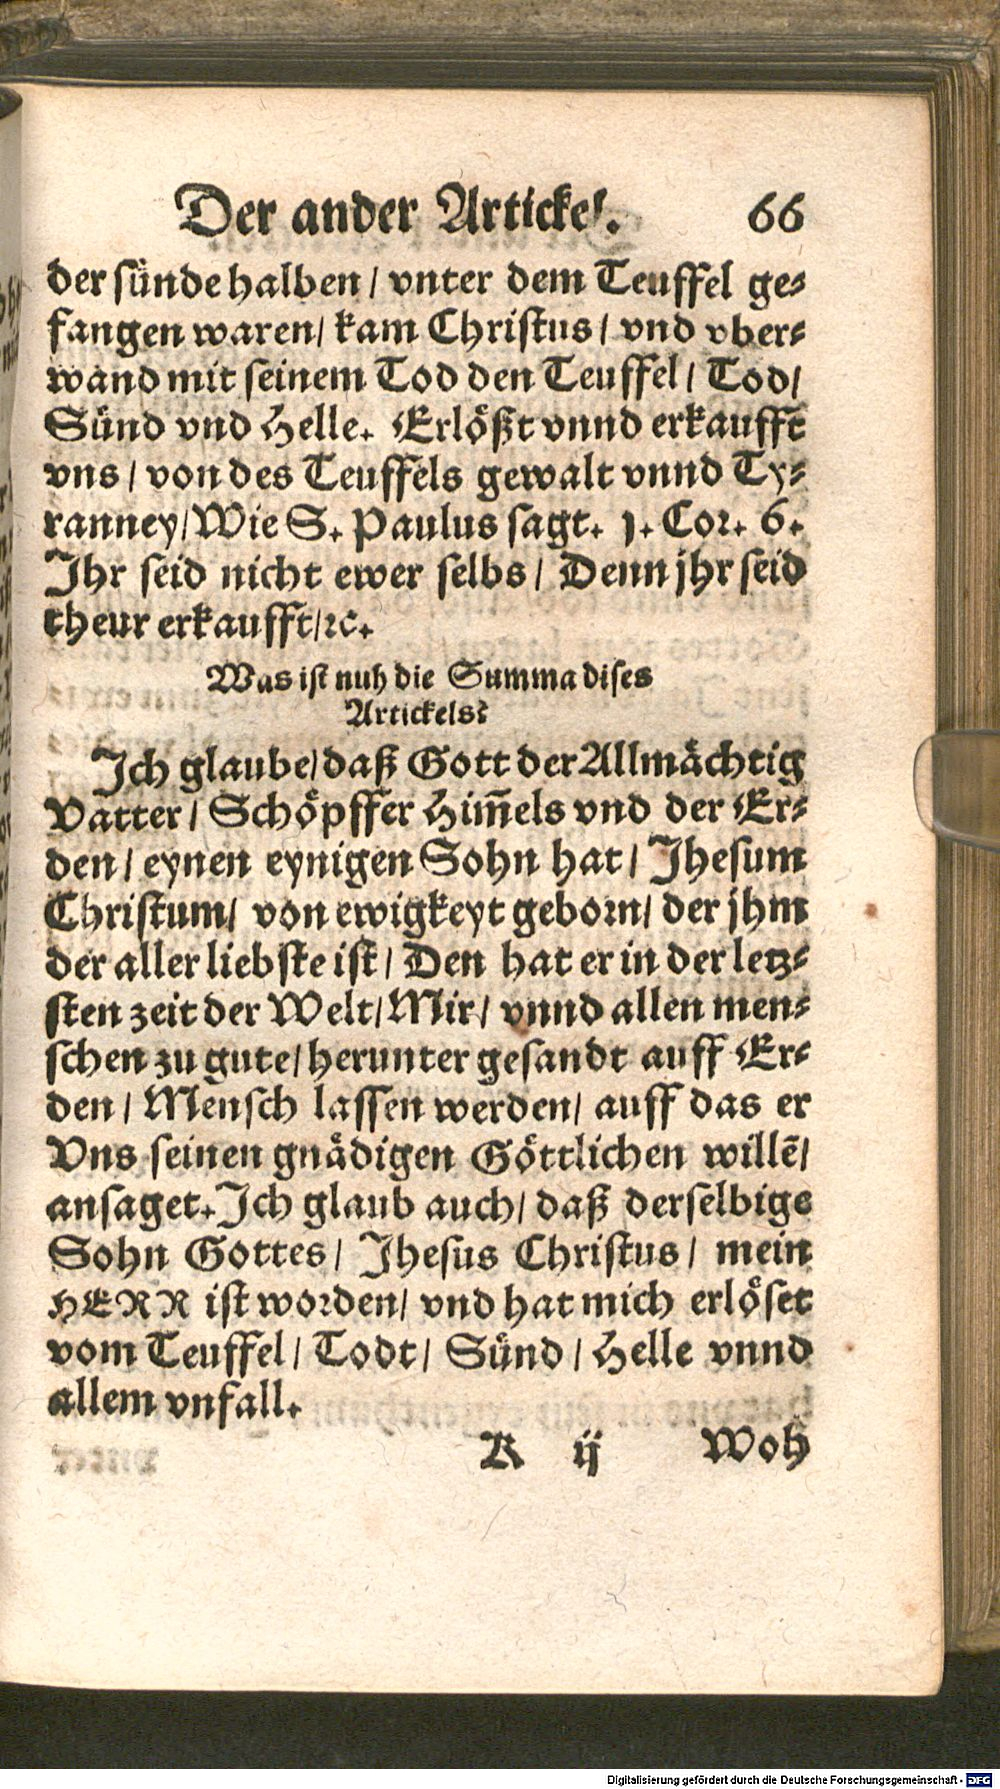 Der ander Artickel. 66
der sünde halben / vnter dem Teuffel ge-
fangen waren / kam Christus / vnd vber-
wand mit seinem Tod den Teuffel / Tod /
Sünd vnd Helle. Erlößt vnnd erkaufft
vns / von des Teuffels gewalt vnnd Ty-
ranney / Wie S. Paulus sagt. 1. Cor. 6.
Ihr seid nicht ewer selbs / Denn jhr seid
theur erkaufft / ꝛc.
Was ist nuh die Summa dises
Artickels?
Ich glaube / daß Gott der Allmächtig
Vatter / Schöpffer Him̃els vnd der Er-
den / eynen eynigen Sohn hat / Jhesum
Christum / von ewigkeyt geborn / der jhm
der aller liebste ist / Den hat er in der letz-
sten zeit der Welt / Mir / vnnd allen men-
schen zu gute / herunter gesandt auff Er-
den / Mensch lassen werden / auff das er
Vns seinen gnädigen Göttlichen willẽ /
ansaget. Ich glaub auch / daß derselbige
Sohn Gottes / Jhesus Christus / mein
HERR ist worden / vnd hat mich erlöset
vom Teuffel / Todt / Sünd / Helle vnnd
allem vnfall.
K ij Woh
Digitalisierung gefördert durch die Deutsche Forschungsgemeinschaft - DFG